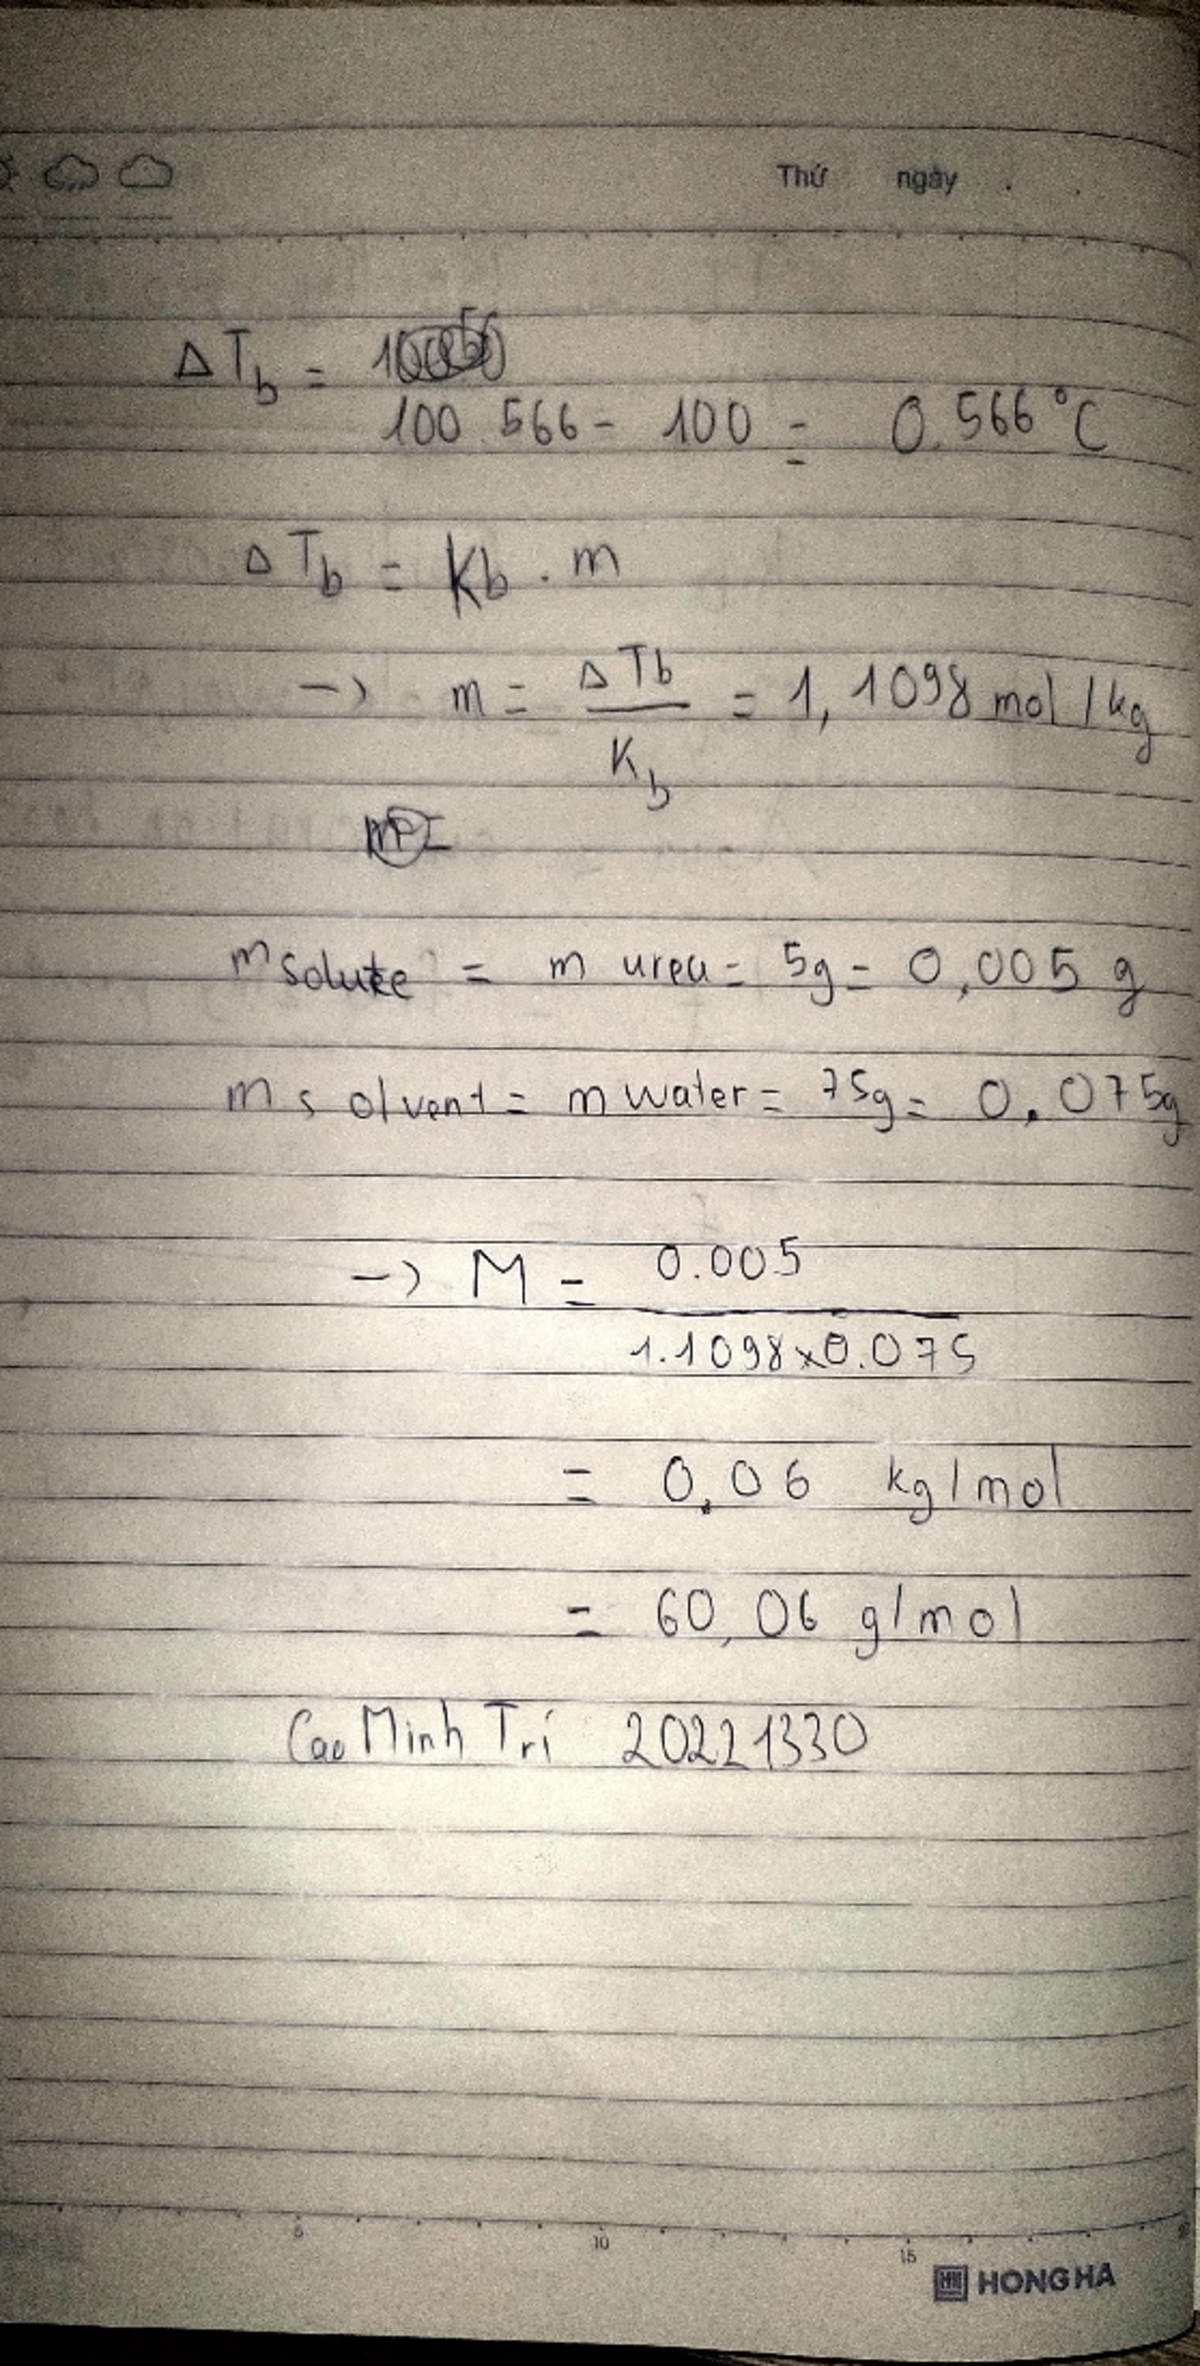 Thứ ngày
ΔT_b =
100.566 - 100 = 0.566°C
ΔT_b = Kb . m
-> m = ΔTb / K_b = 1,1098 mol/kg
m solute = m urea = 5g = 0,005 g
m solvent = m water = 75g = 0.075g
-> M = 0.005 / 1.1098x0.075
= 0,06 kg/mol
= 60,06 g/mol
Cao Minh Trí 20221330
5 10 15
HONG HA